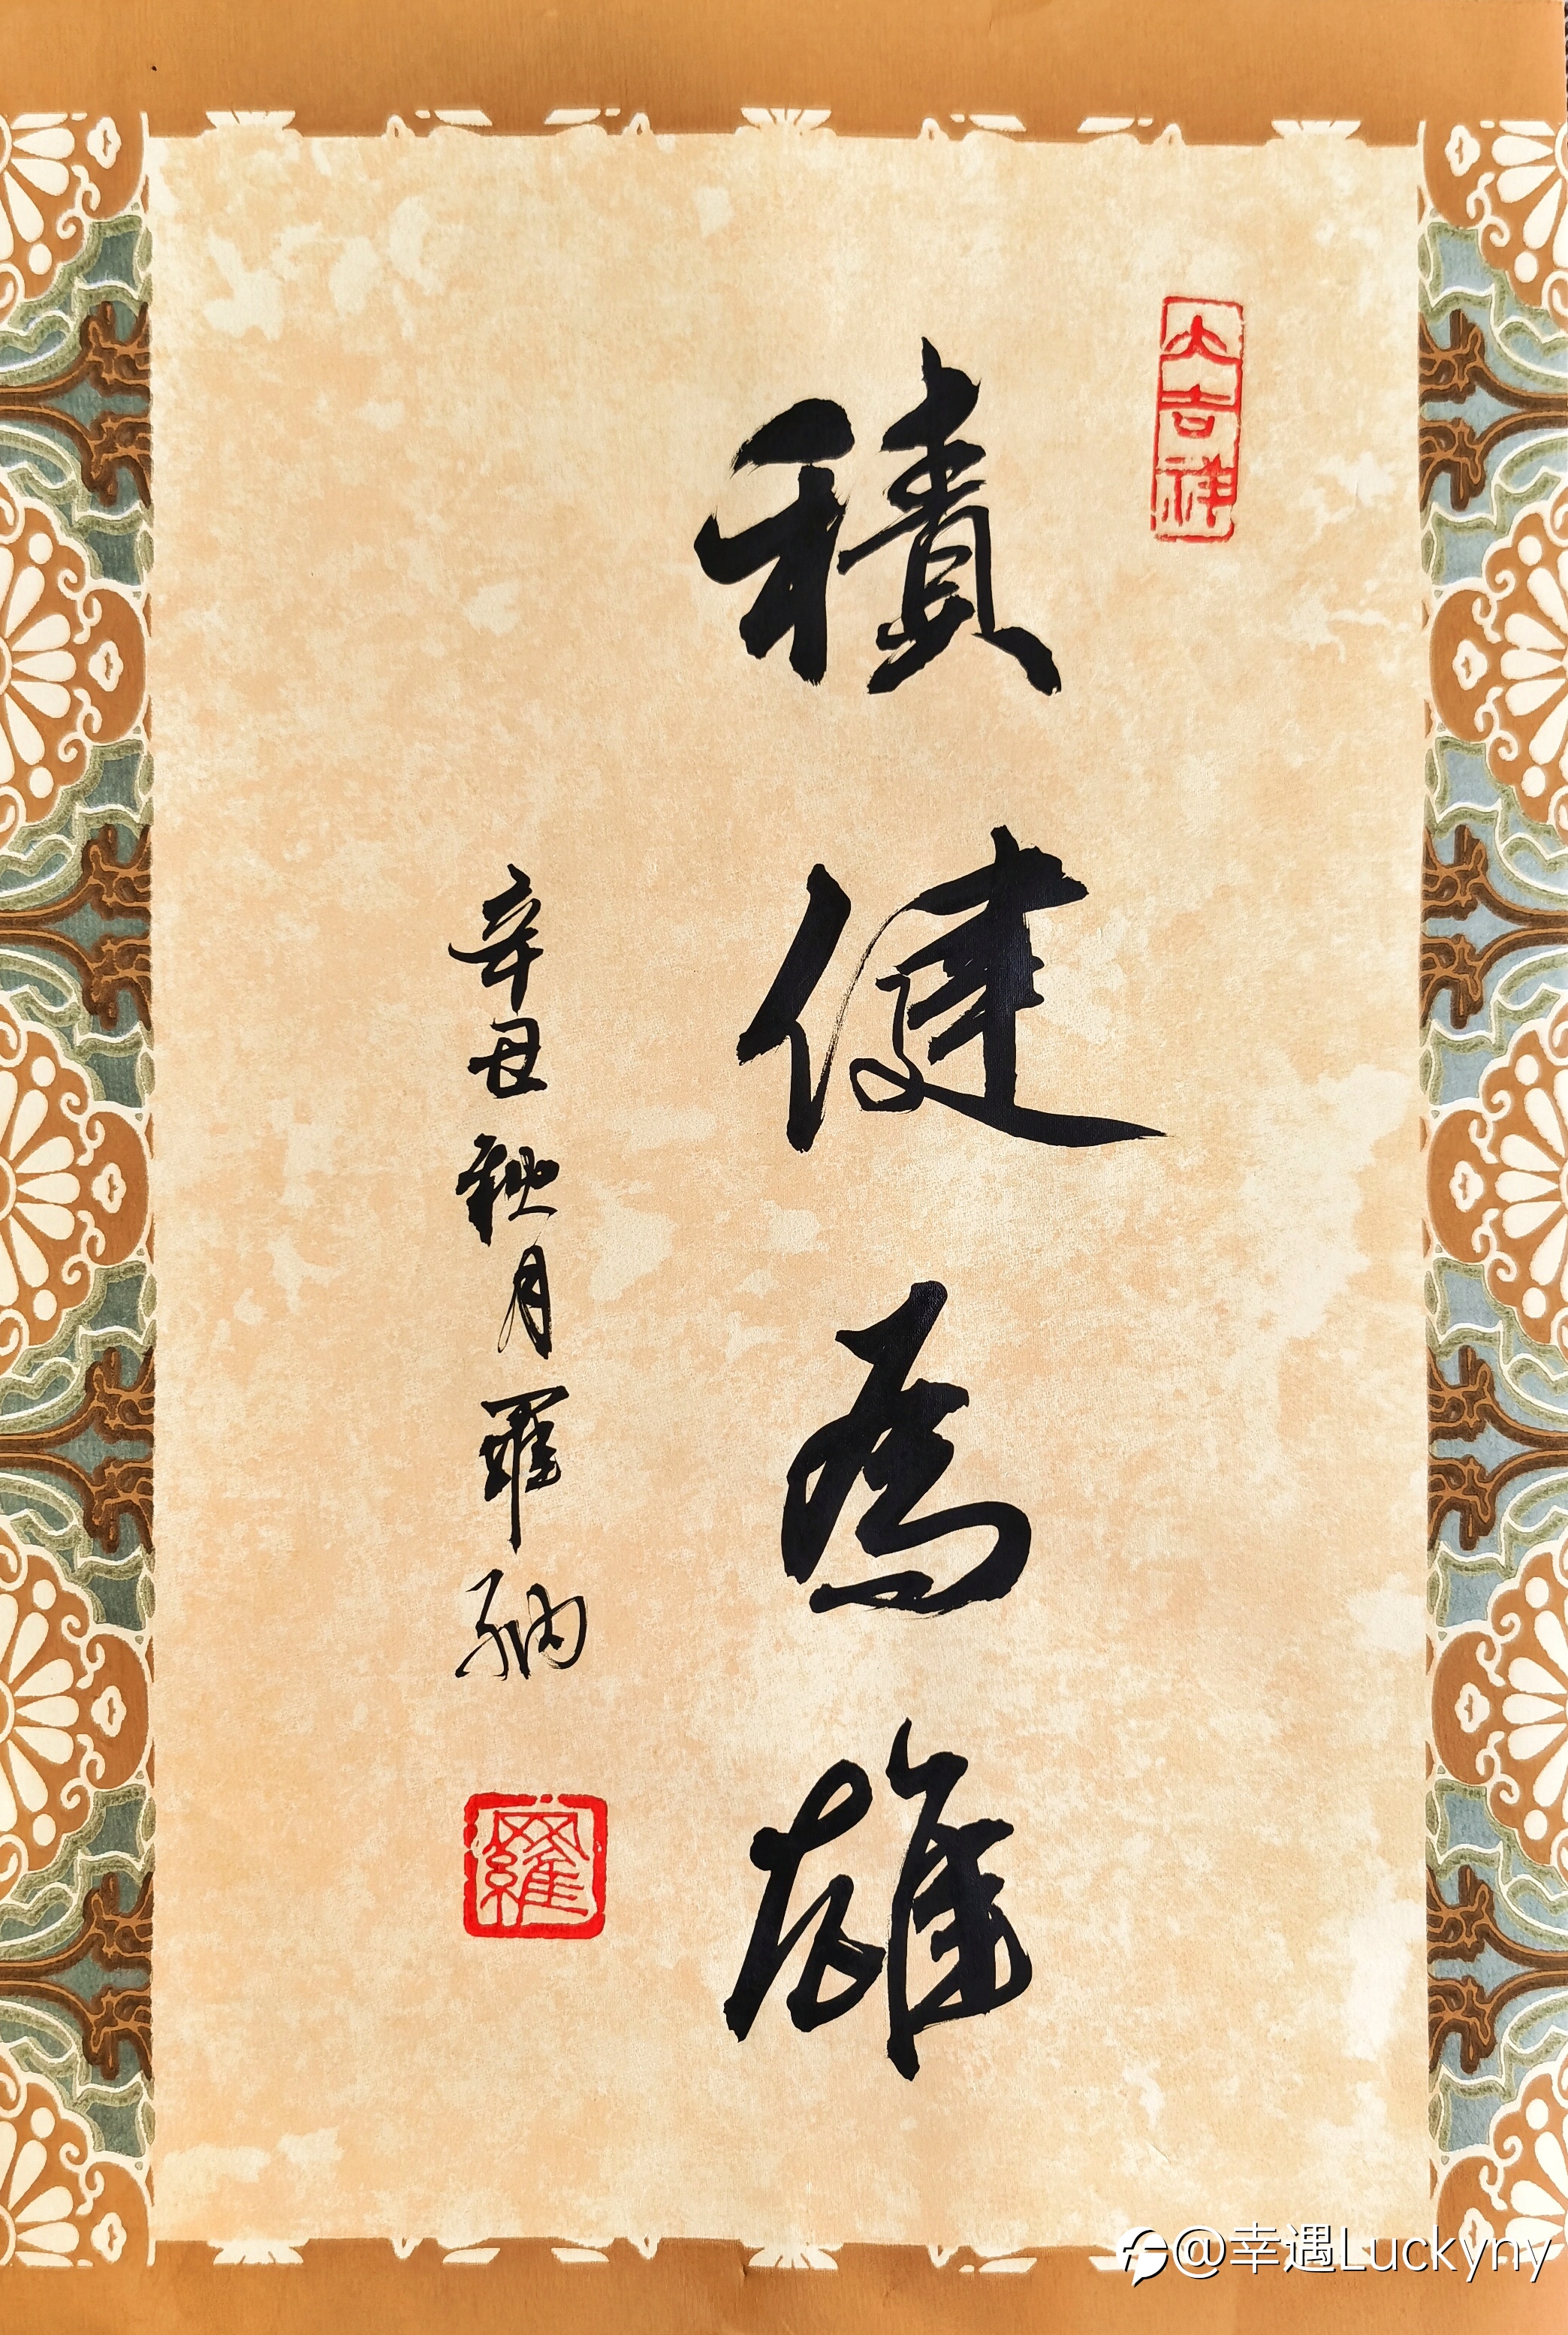 大吉祥
積健為雄
辛丑秋月羅納
羅
@幸遇Luckyny